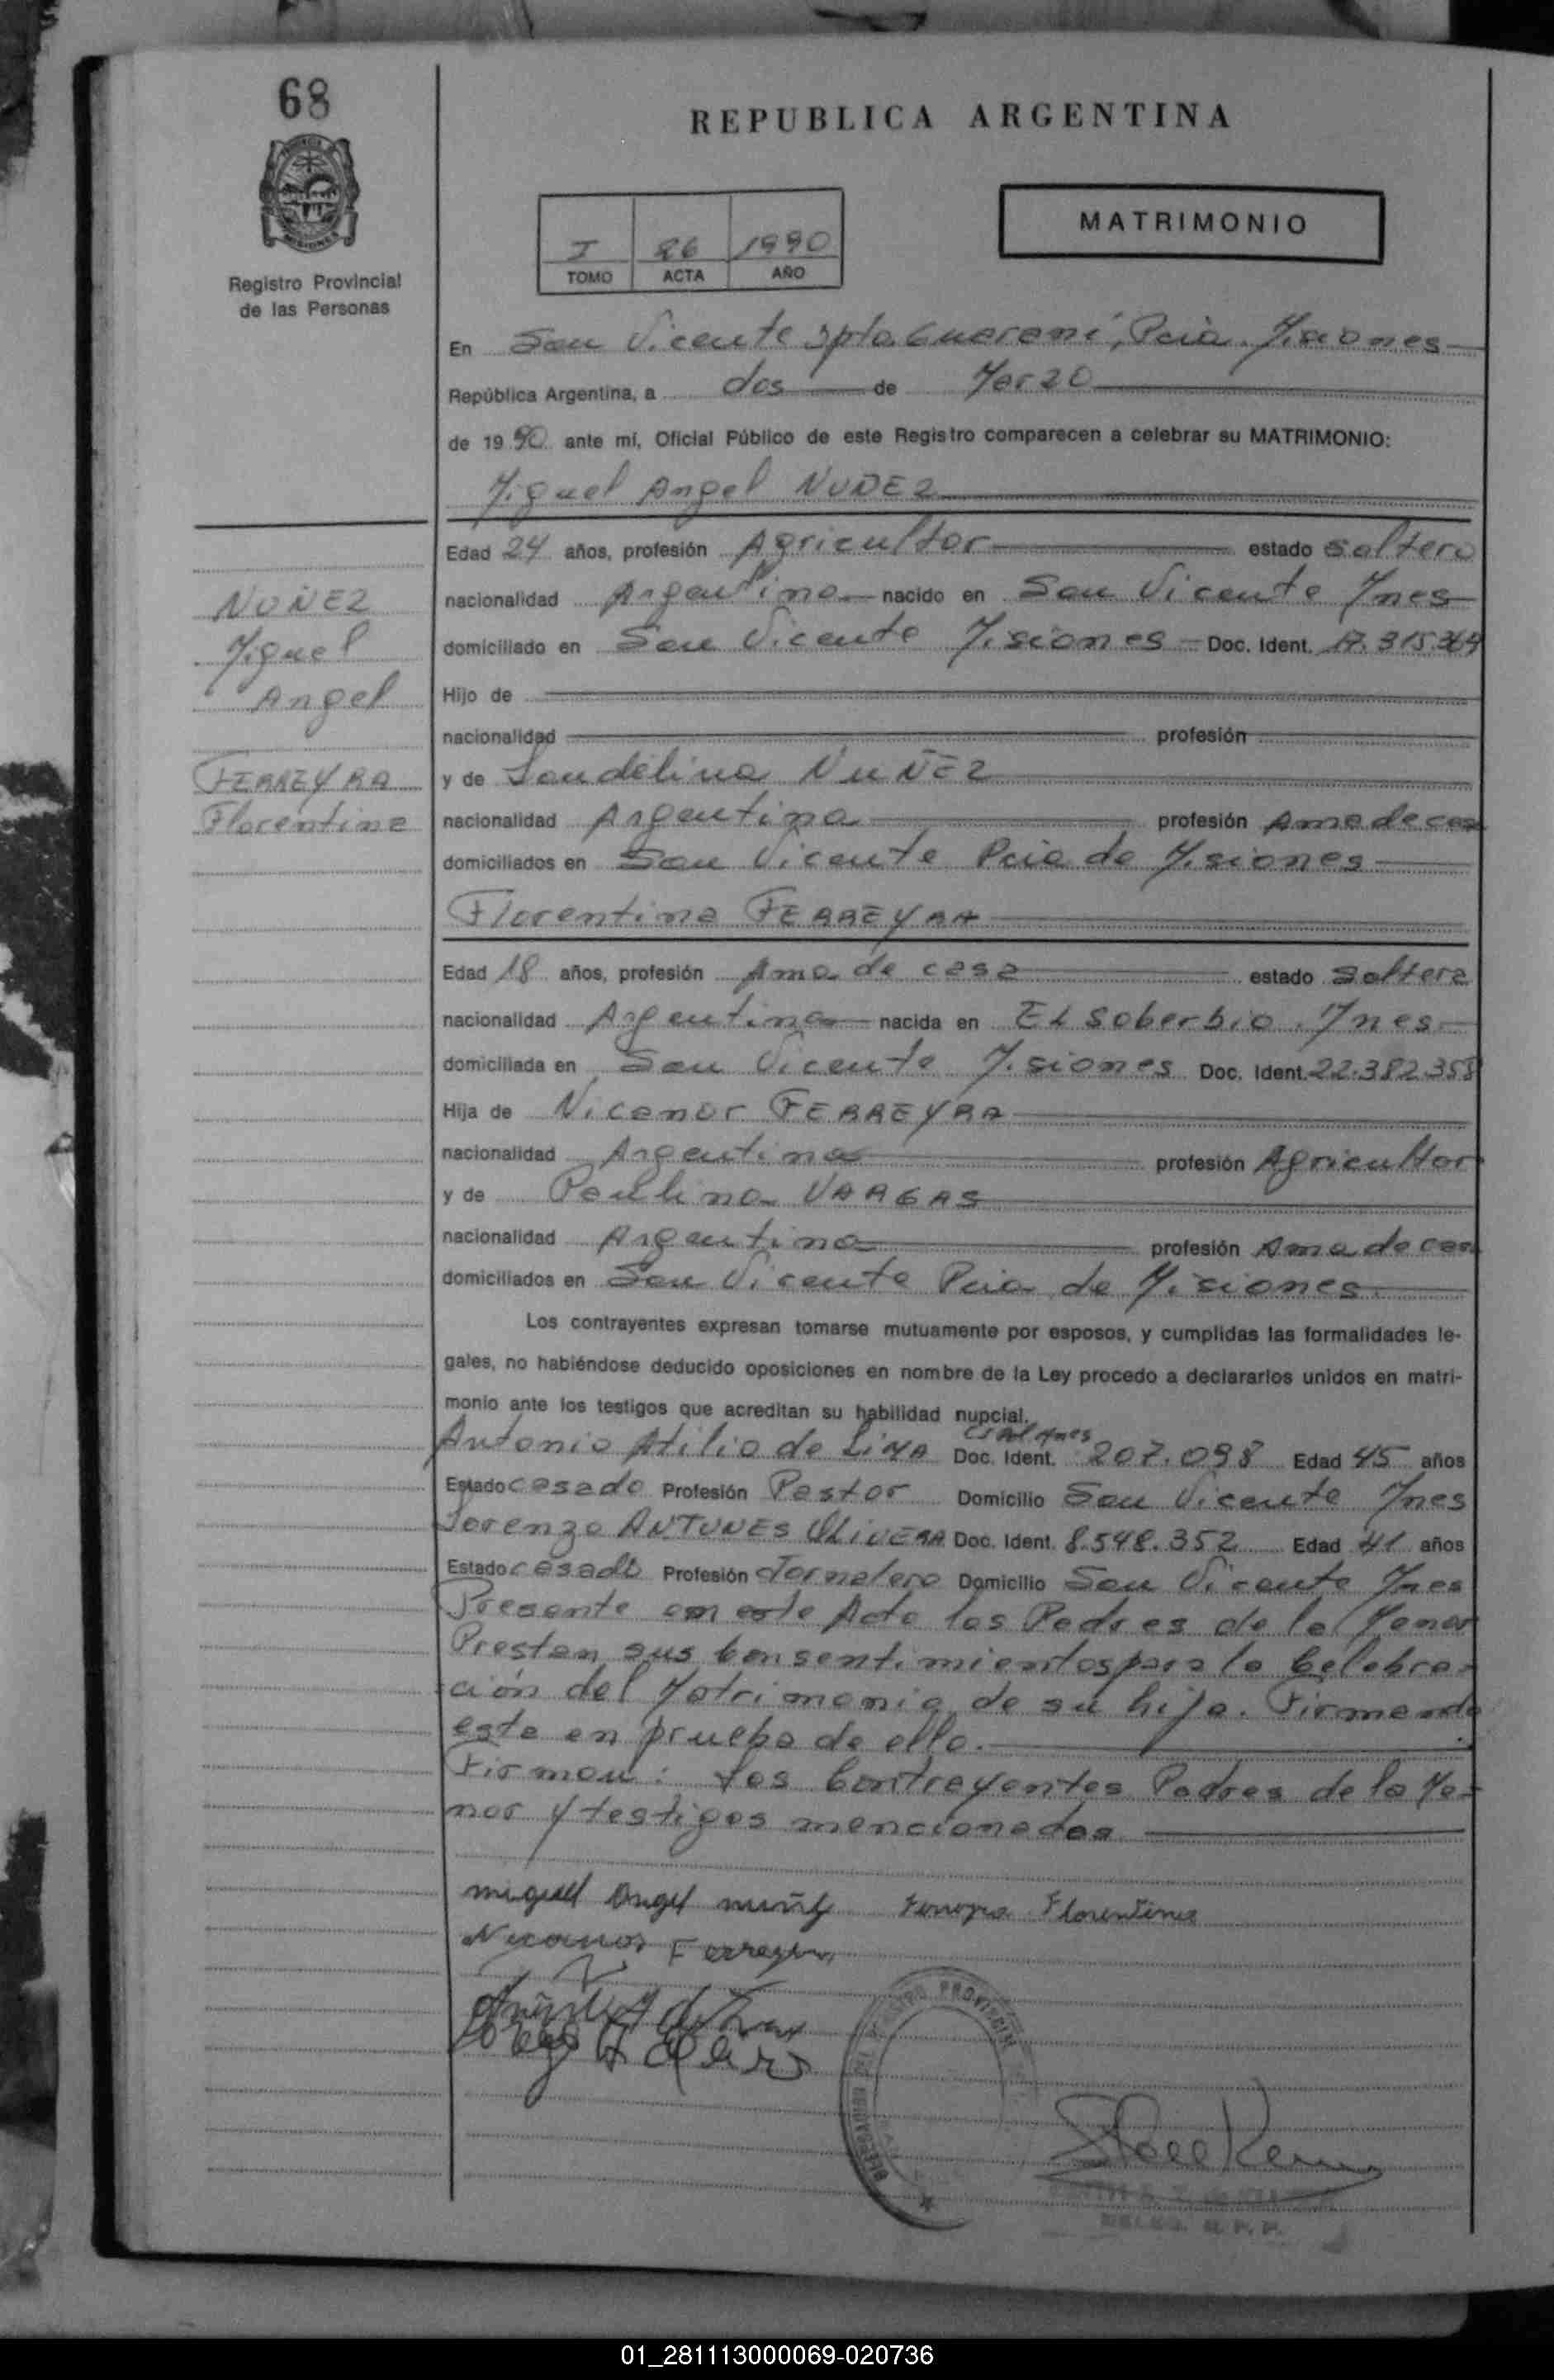 68
REPUBLICA ARGENTINA
MISIONES
Registro Provincial
de las Personas
I 26 1990
TOMO ACTA AÑO
MATRIMONIO
En San Vicente Dpto. Guarani, Pcia. Misiones
República Argentina, a dos de Marzo
de 1990 ante mí, Oficial Público de este Registro comparecen a celebrar su MATRIMONIO:
Miguel Angel NUÑEZ
Edad 24 años, profesión Agricultor estado soltero
nacionalidad Argentina nacido en San Vicente Mnes
domiciliado en San Vicente Misiones Doc. Ident. 17.315.364
Hijo de
nacionalidad profesión
y de Laudelina NUÑEZ
nacionalidad Argentina profesión Ama de casa
domiciliados en San Vicente Pcia de Misiones
NUÑEZ
Miguel
Angel
FERREYRA
Florentina
Florentina FERREYRA
Edad 18 años, profesión Ama de casa estado soltera
nacionalidad Argentina nacida en EL Soberbio, Mnes
domiciliada en San Vicente Misiones Doc. Ident. 22.382.358
Hija de Nicanor FERREYRA
nacionalidad Argentina profesión Agricultor
y de Paulina VARGAS
nacionalidad Argentina profesión Ama de casa
domiciliados en San Vicente Pcia de Misiones
Los contrayentes expresan tomarse mutuamente por esposos, y cumplidas las formalidades le-
gales, no habiéndose deducido oposiciones en nombre de la Ley procedo a declararlos unidos en matri-
monio ante los testigos que acreditan su habilidad nupcial.
Antonio Atilio de LIMA Doc. Ident. 207.098 Edad 45 años
Estado casado Profesión Pastor Domicilio San Vicente Mnes
Lorenzo ANTUNES OLIVERA Doc. Ident. 8.548.352 Edad 41 años
Estado casado Profesión Jornalero Domicilio San Vicente Mnes
Presente en este Acto los Padres de la Menor
Prestan sus Consentimientos para la Celebra-
ción del Matrimonio de su hija. Firmando
este en prueba de ello.
Firman: Los Contrayentes Padres de la Me-
nor y testigos mencionados
miguel Angel nuñez Ferreyra Florentina
Nicanor Ferreyra
REGISTRO PROVINCIAL
DELEG. R. P. P.
01_281113000069-020736